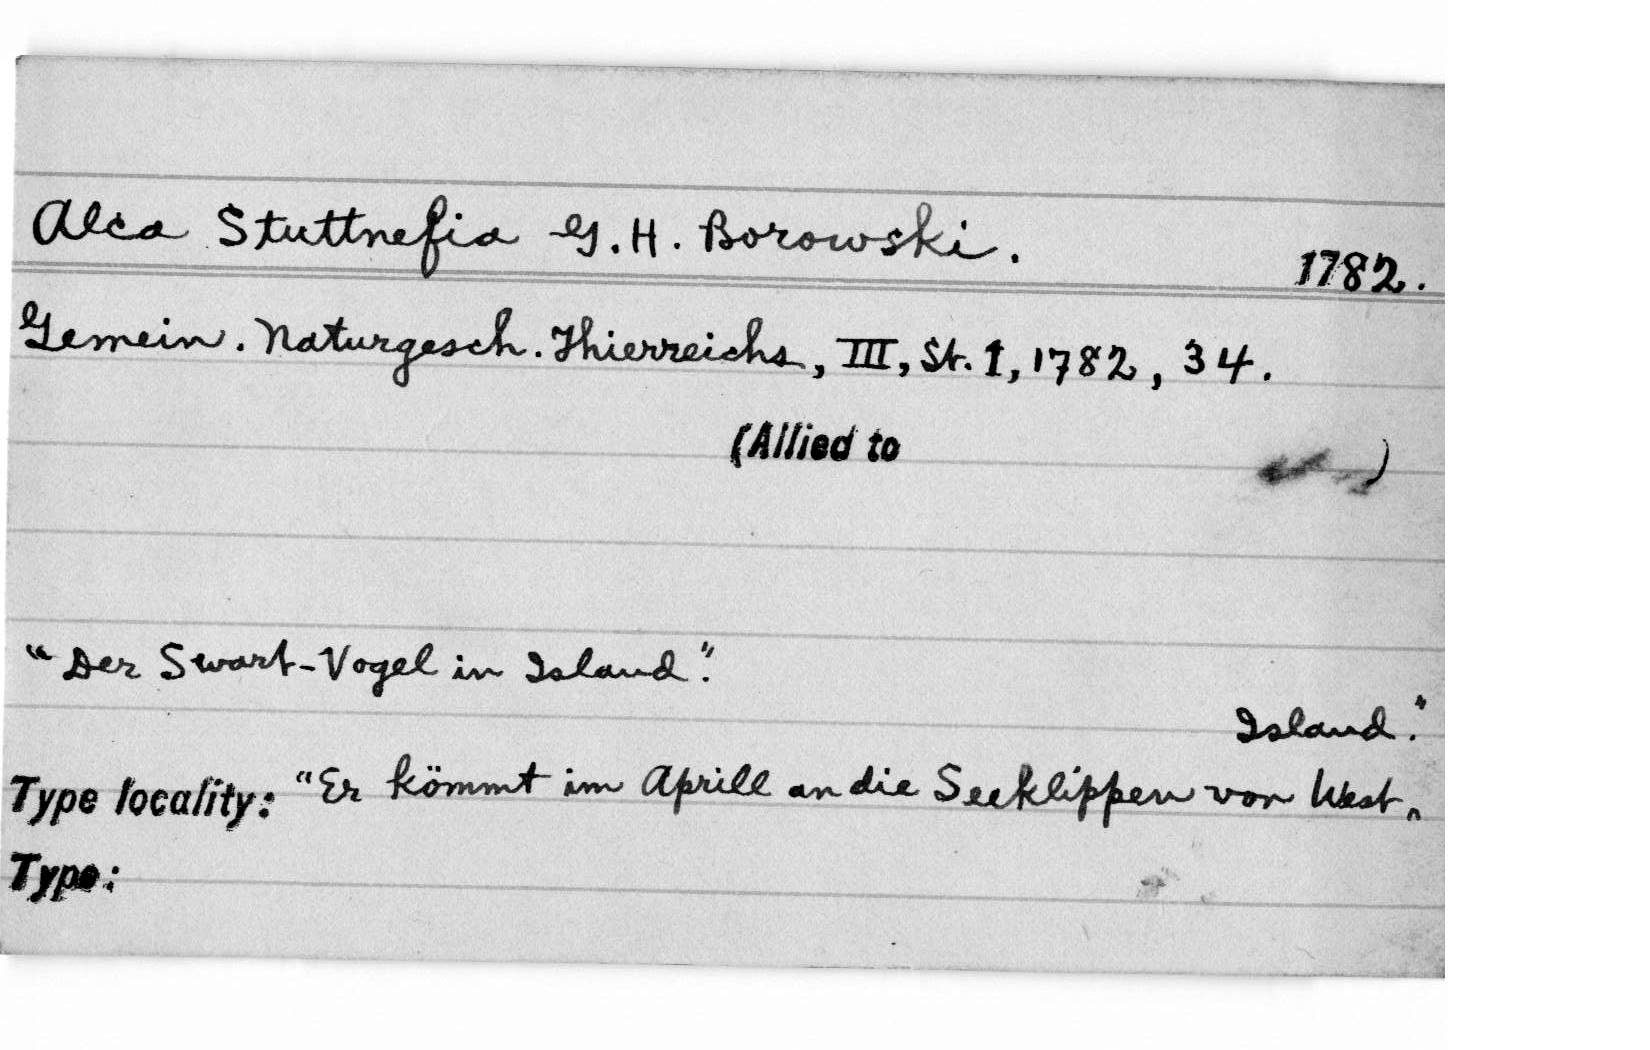 Alca Stuttnefia G. H. Borowski.
1782.
Gemein. Naturgesch. Thierreichs, III, St. 1, 1782, 34.
(Allied to )
"Der Swart-Vogel in Island."
Island."
Type locality: "Er kömmt im Aprill an die Seeklippen von West^
Type: